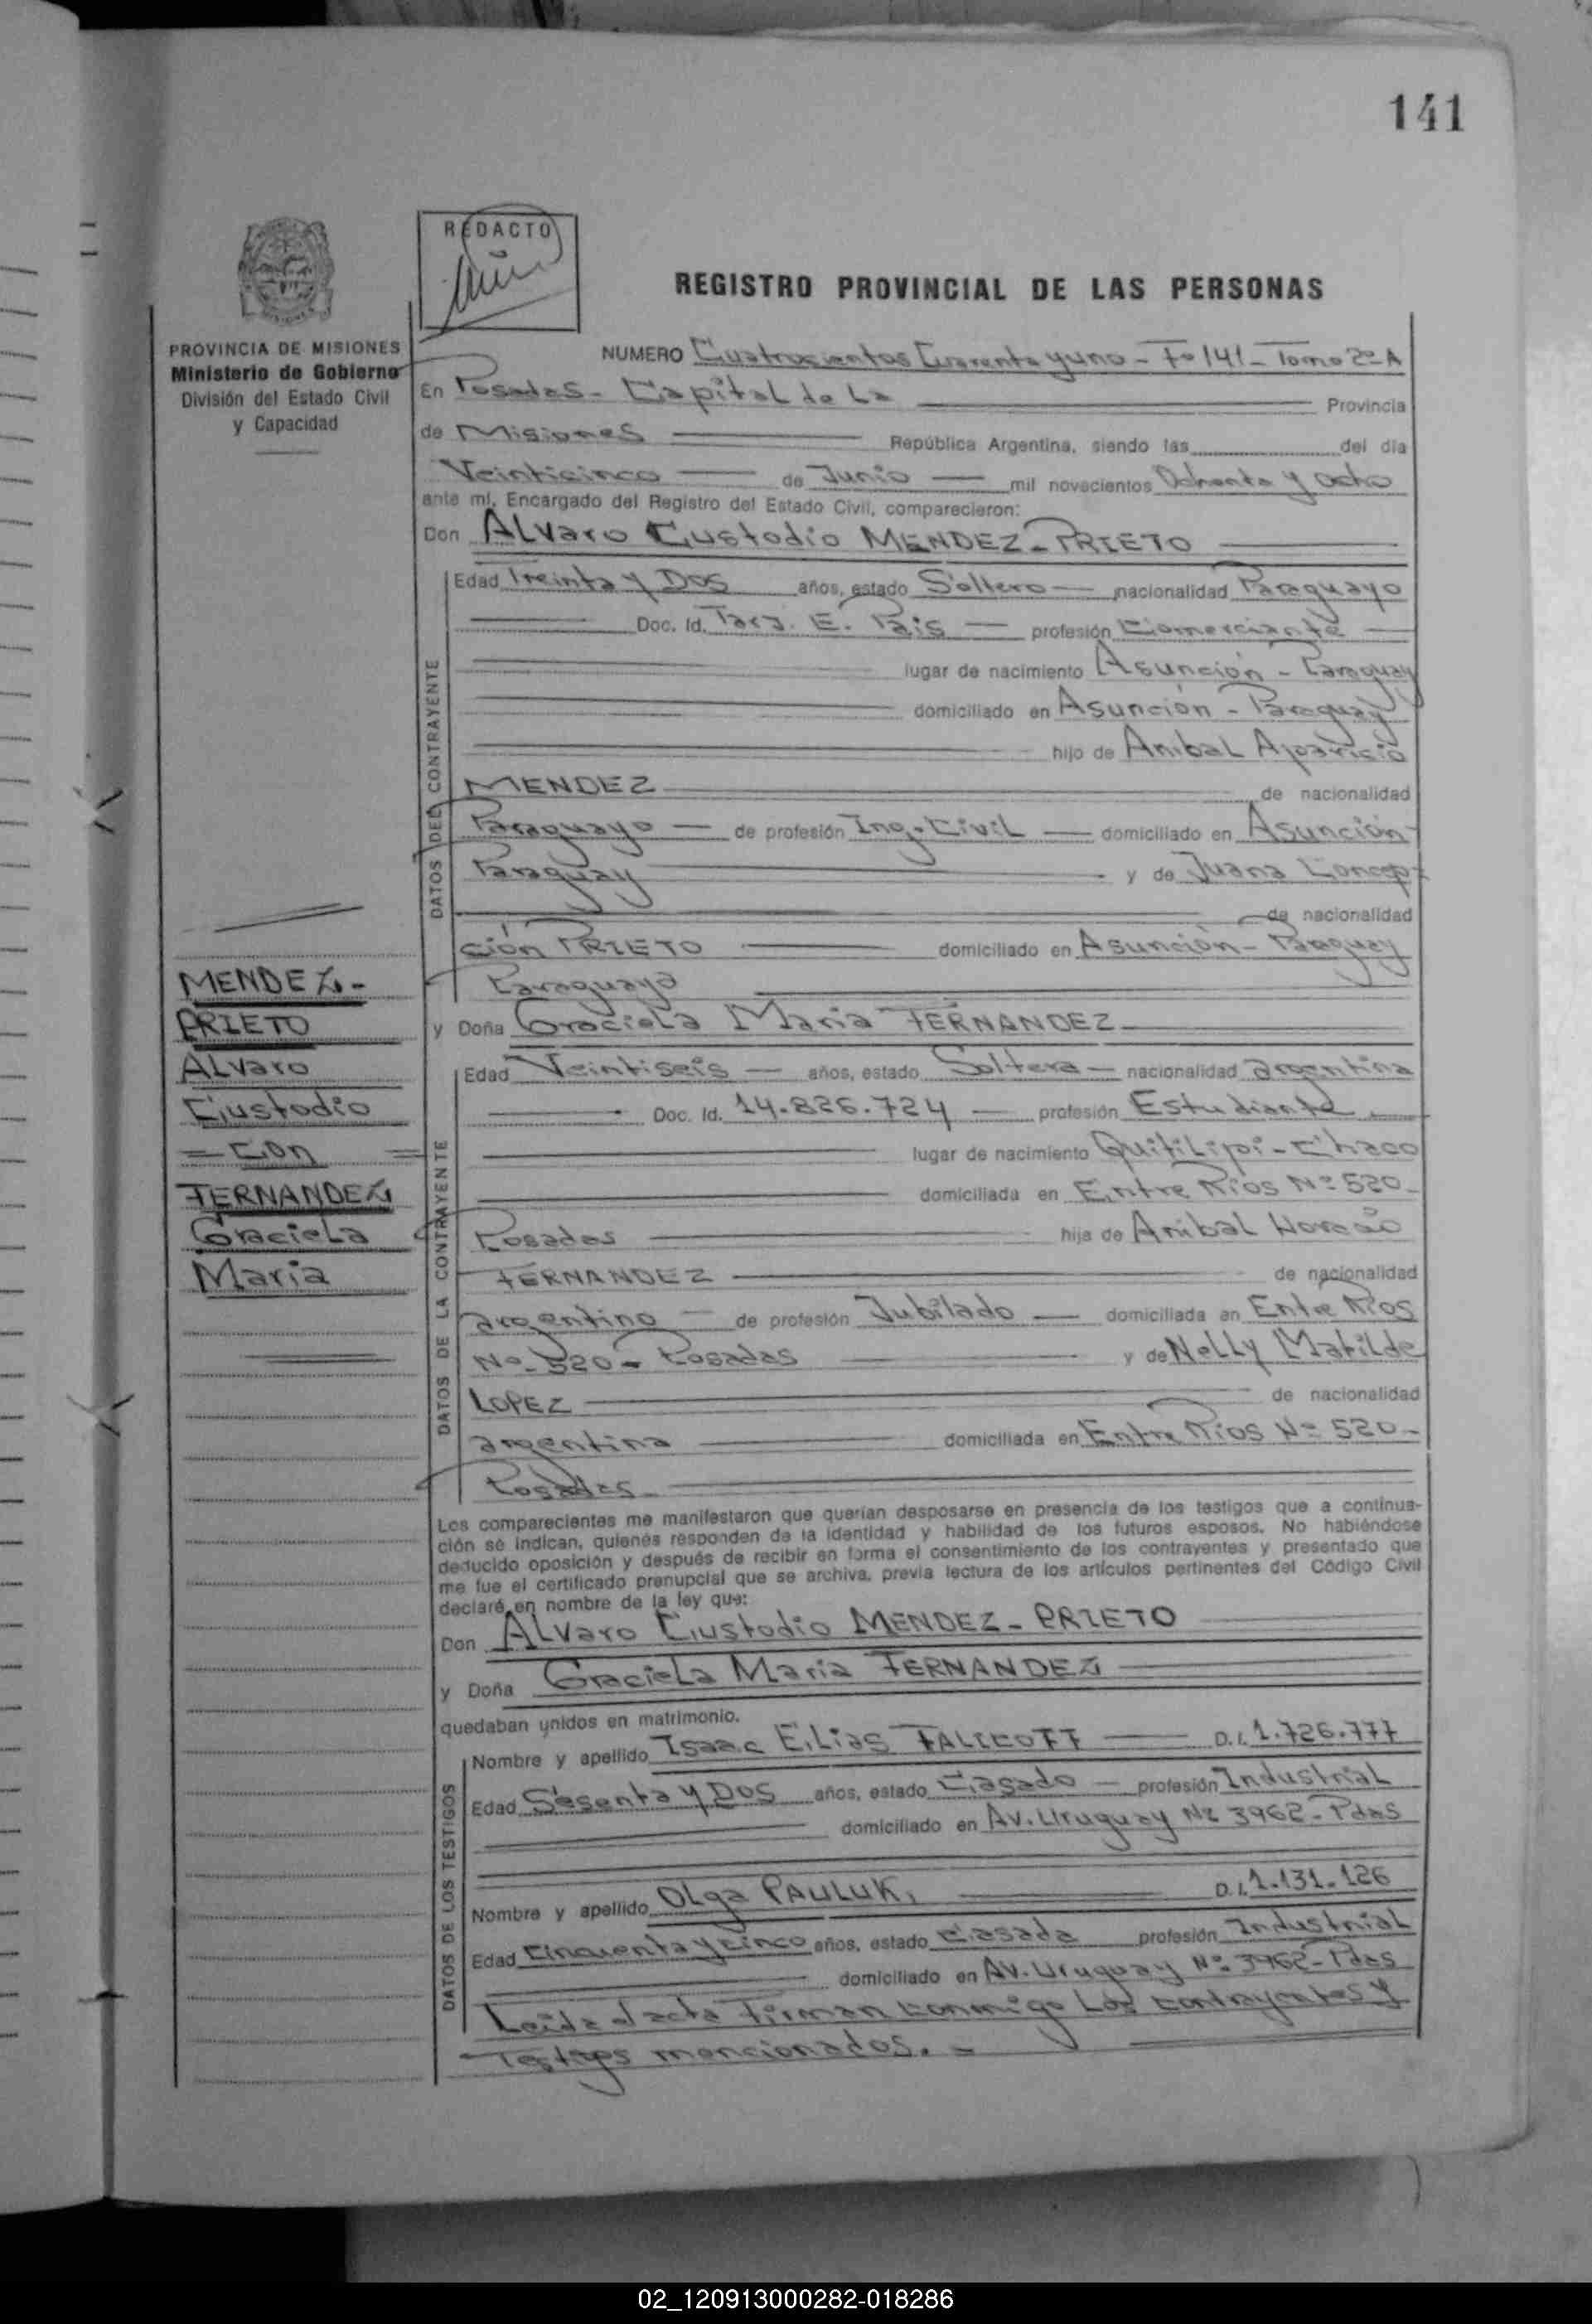 141
REDACTO
REGISTRO PROVINCIAL DE LAS PERSONAS
PROVINCIA DE MISIONES
Ministerio de Gobierno
División del Estado Civil
y Capacidad
NUMERO Cuatrocientos Cuarenta y uno - Fº 141 - Tomo 2º A
En Posadas - Capital de La Provincia
de Misiones República Argentina, siendo las del día
Veinticinco de Junio mil novecientos Ochenta y Ocho
ante mí, Encargado del Registro del Estado Civil, comparecieron:
Don Alvaro Custodio MENDEZ - PRIETO
DATOS DEL CONTRAYENTE
Edad Treinta y Dos años, estado Soltero nacionalidad Paraguayo
Doc. Id. Tarj. E. Pais profesión Comerciante
lugar de nacimiento Asunción - Paraguay
domiciliado en Asunción - Paraguay
hijo de Anibal Aparicio
MENDEZ de nacionalidad
Paraguayo de profesión Ing. Civil domiciliado en Asunción
Paraguay y de Juana Concep
de nacionalidad
ción PRIETO domiciliado en Asunción - Paraguay
Paraguaya
y Doña Graciela Maria FERNANDEZ
DATOS DE LA CONTRAYENTE
Edad Veintiseis años, estado Soltera nacionalidad argentina
Doc. Id. 14.826.724 profesión Estudiante
lugar de nacimiento Quitilipi - Chaco
domiciliada en Entre Rios Nº 520
Posadas hija de Anibal Horacio
FERNANDEZ de nacionalidad
argentino de profesión Jubilado domiciliada en Entre Rios
Nº 520 - Posadas y de Nelly Matilde
LOPEZ de nacionalidad
argentina domiciliada en Entre Rios Nº 520
Posadas
MENDEZ -
PRIETO
Alvaro
Custodio
= con =
FERNANDEZ
Graciela
Maria
Los comparecientes me manifestaron que querían desposarse en presencia de los testigos que a continua-
ción se indican, quienes responden de la identidad y habilidad de los futuros esposos. No habiéndose
deducido oposición y después de recibir en forma el consentimiento de los contrayentes y presentado que
me fue el certificado prenupcial que se archiva, previa lectura de los artículos pertinentes del Código Civil
declaré en nombre de la ley que:
Don Alvaro Custodio MENDEZ - PRIETO
y Doña Graciela Maria FERNANDEZ
quedaban unidos en matrimonio.
DATOS DE LOS TESTIGOS
Nombre y apellido Isaac Elias FALICOFF D.I. 1.726.777
Edad Sesenta y Dos años, estado Casado profesión Industrial
domiciliado en Av. Uruguay Nº 3962 - Pdas
Nombre y apellido Olga PAULUK D.I. 1.131.126
Edad Cincuenta y cinco años, estado Casada profesión Industrial
domiciliado en Av. Uruguay Nº 3962 - Pdas
Leida el acta Firman conmigo Los contrayentes y
Testigos mencionados. -
02_120913000282-018286